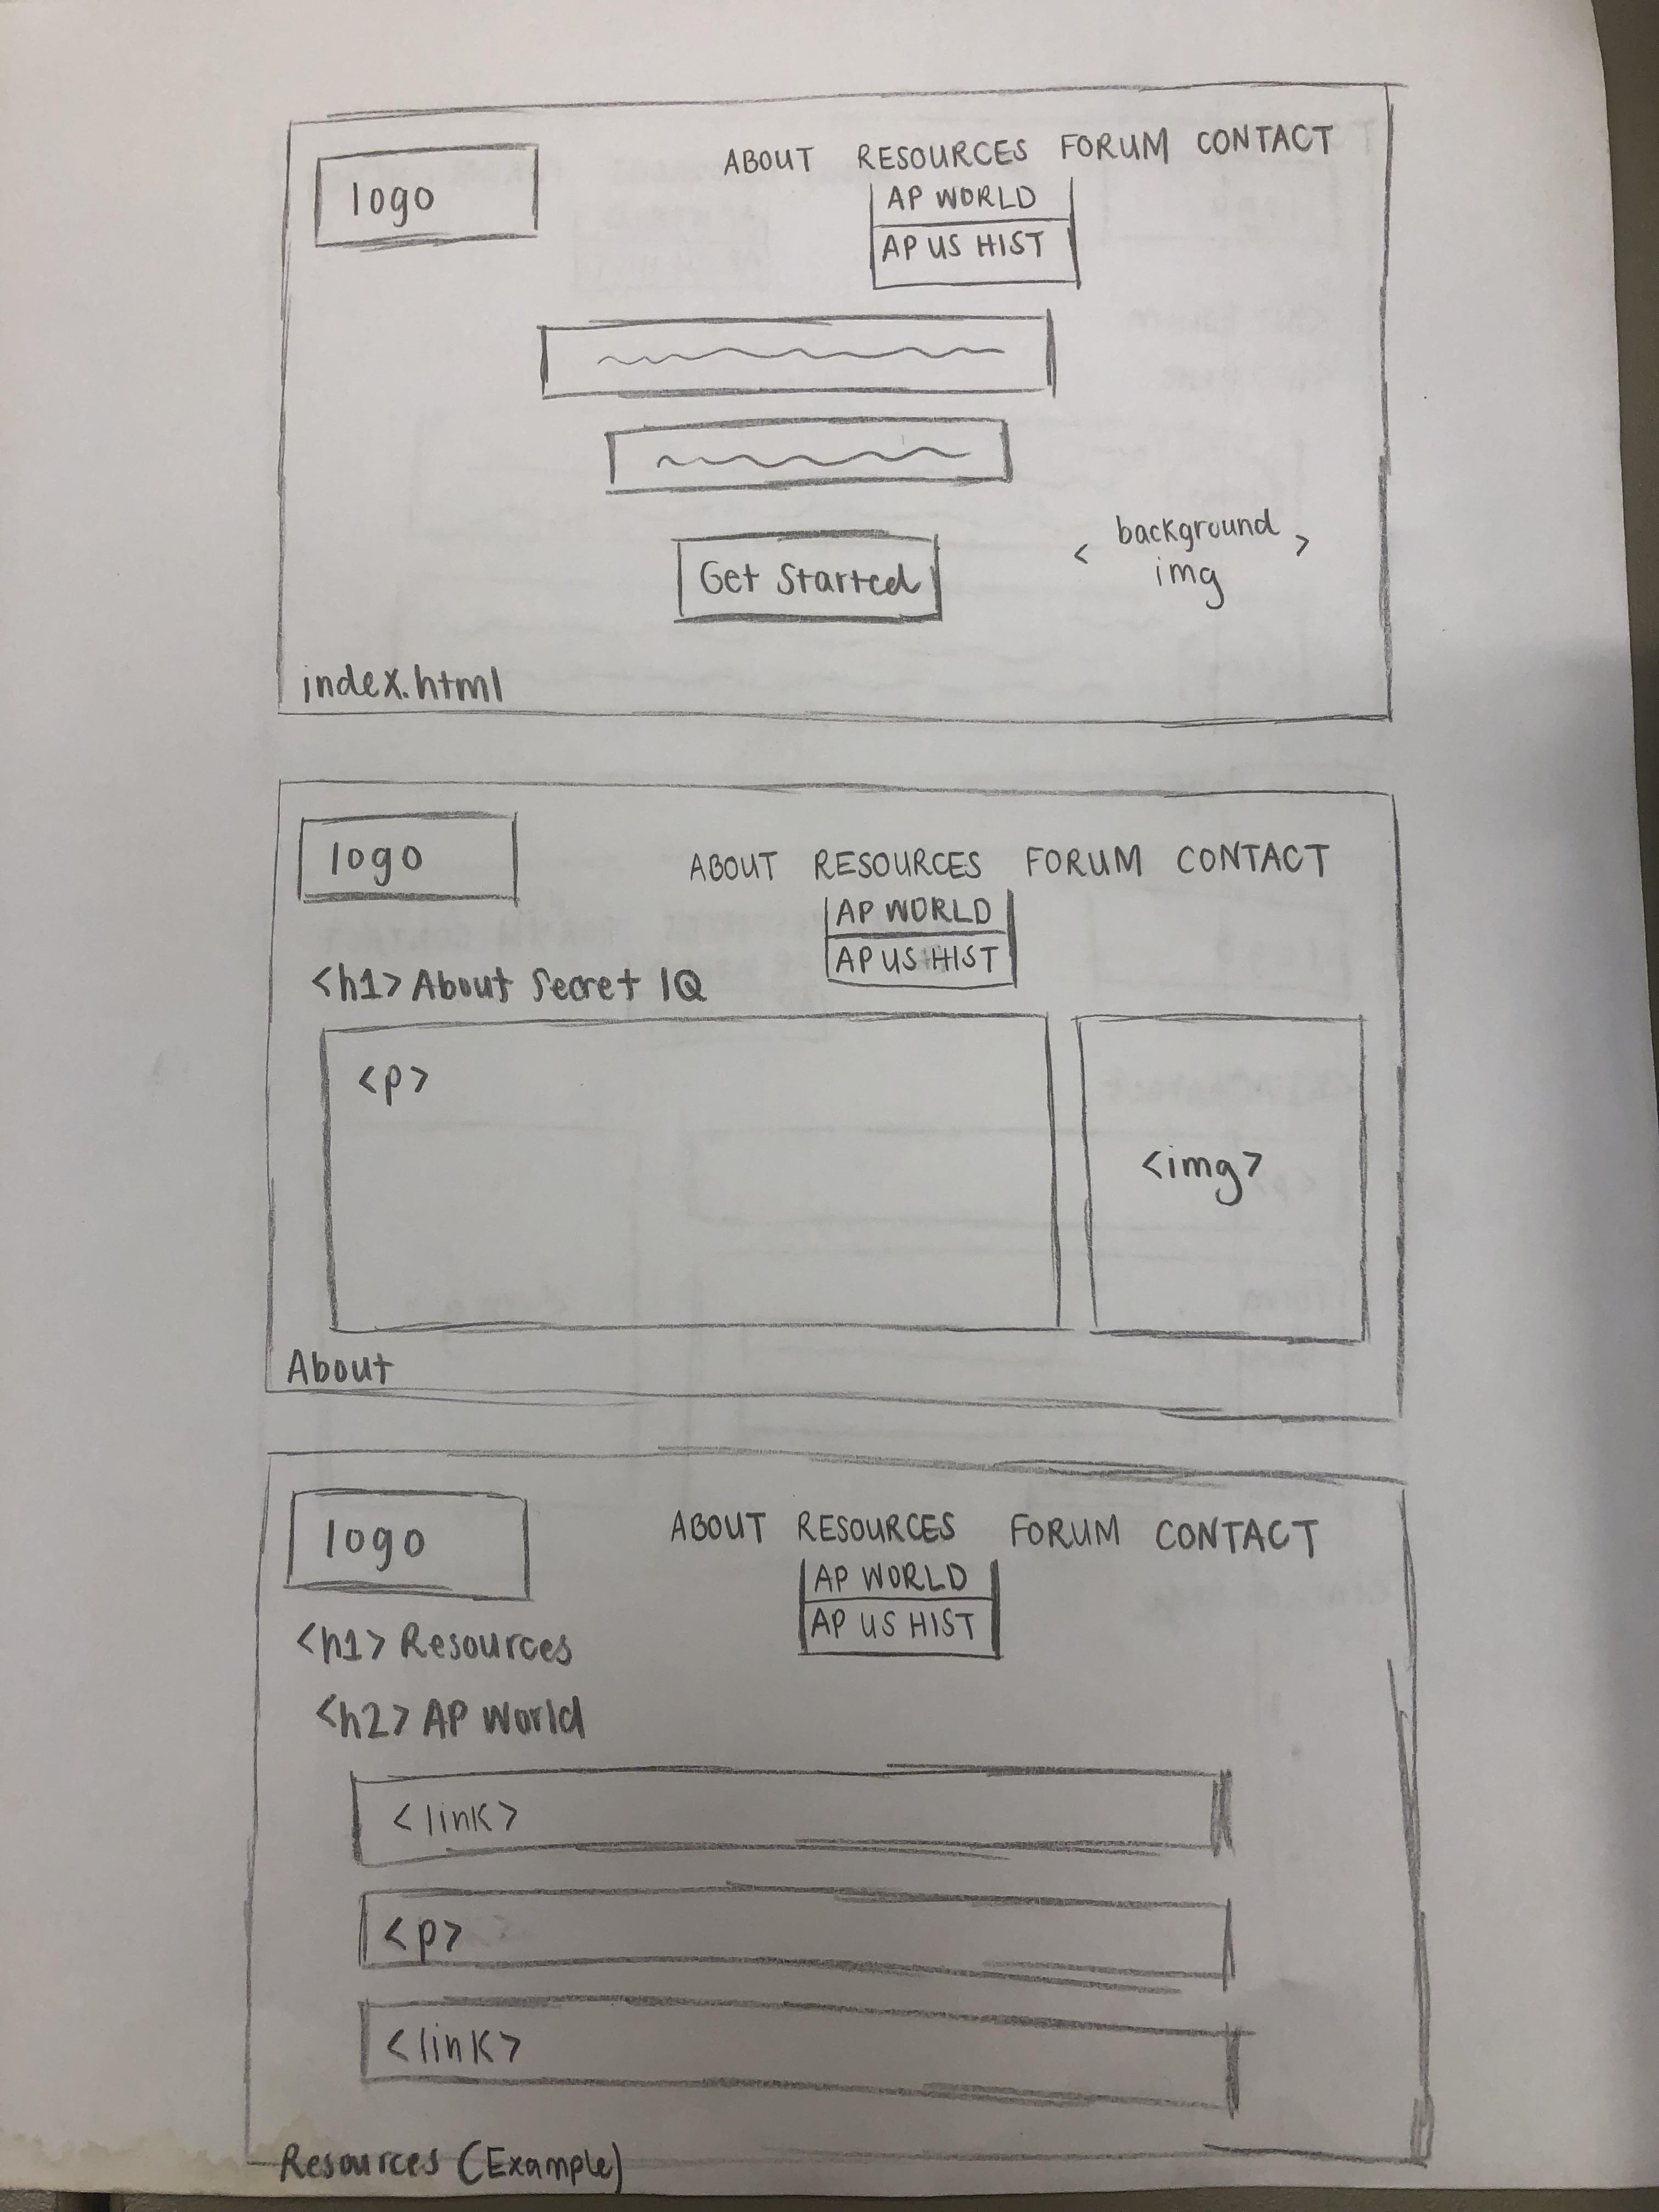 logo
ABOUT RESOURCES FORUM CONTACT
AP WORLD
AP US HIST
Get Started
< background >
img
index.html
logo
ABOUT RESOURCES FORUM CONTACT
AP WORLD
AP US HIST
<h1> About Secret IQ
<p>
<img>
About
logo
ABOUT RESOURCES FORUM CONTACT
AP WORLD
AP US HIST
<h1> Resources
<h2> AP World
<link>
<p>
<link>
Resources (Example)